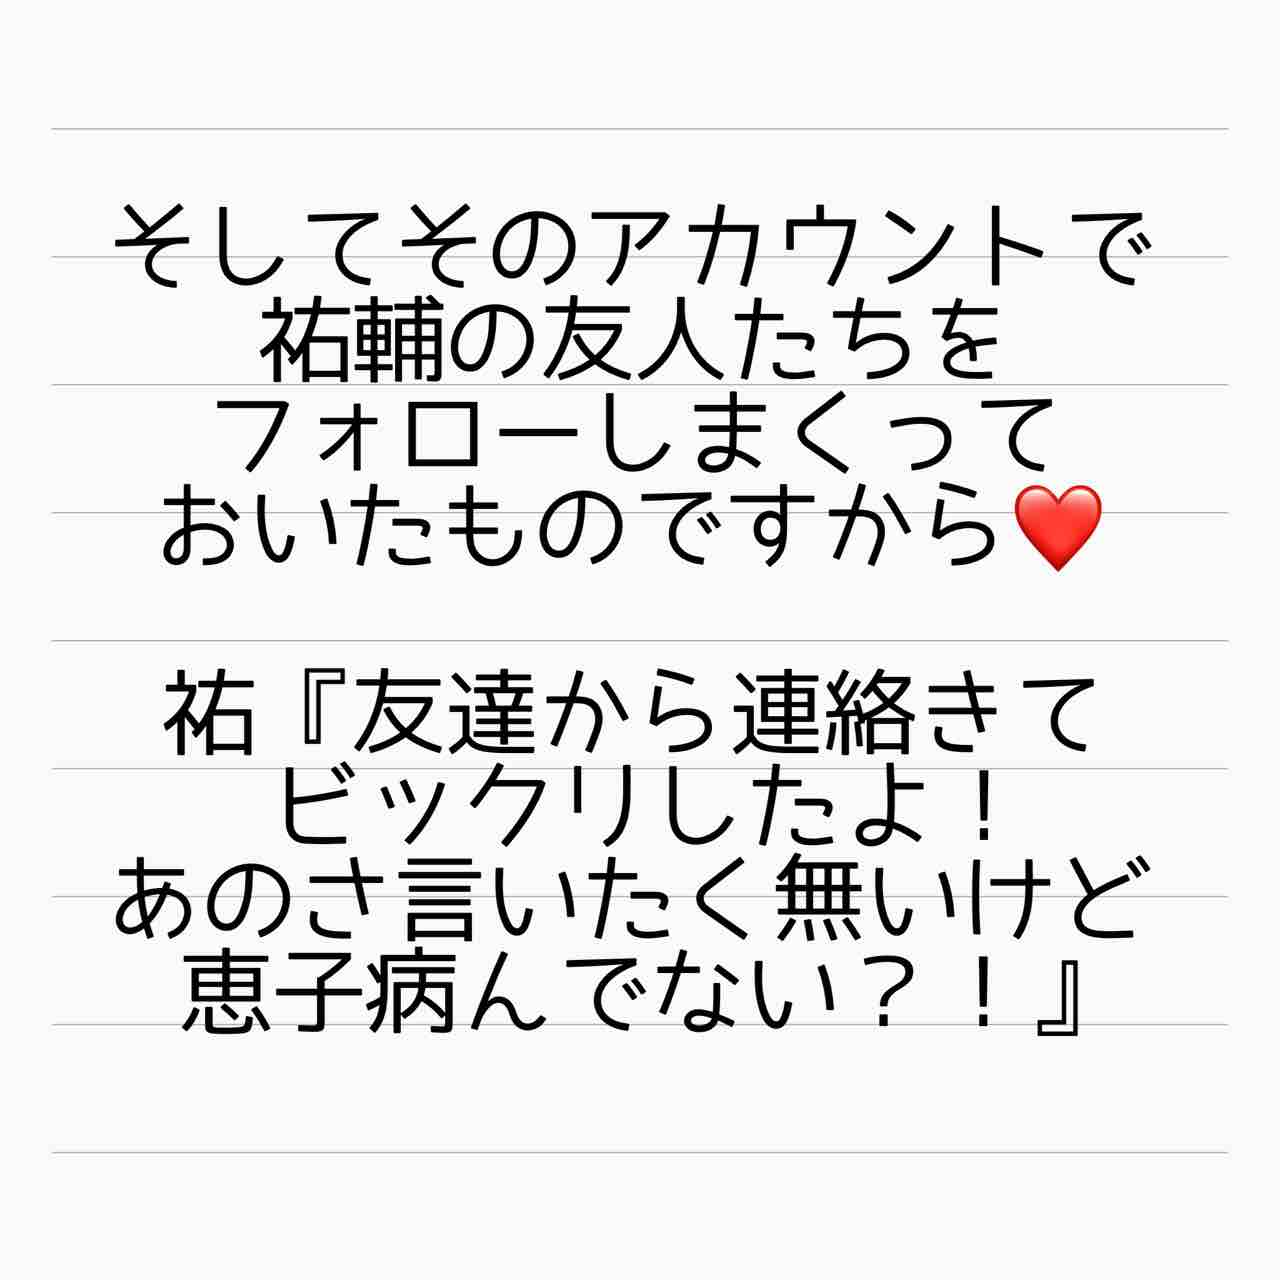 そしてそのアカウントで
祐輔の友人たちを
フォローしまくって
おいたものですから❤️
祐『友達から連絡きて
ビックリしたよ！
あのさ言いたく無いけど
恵子病んでない？！』